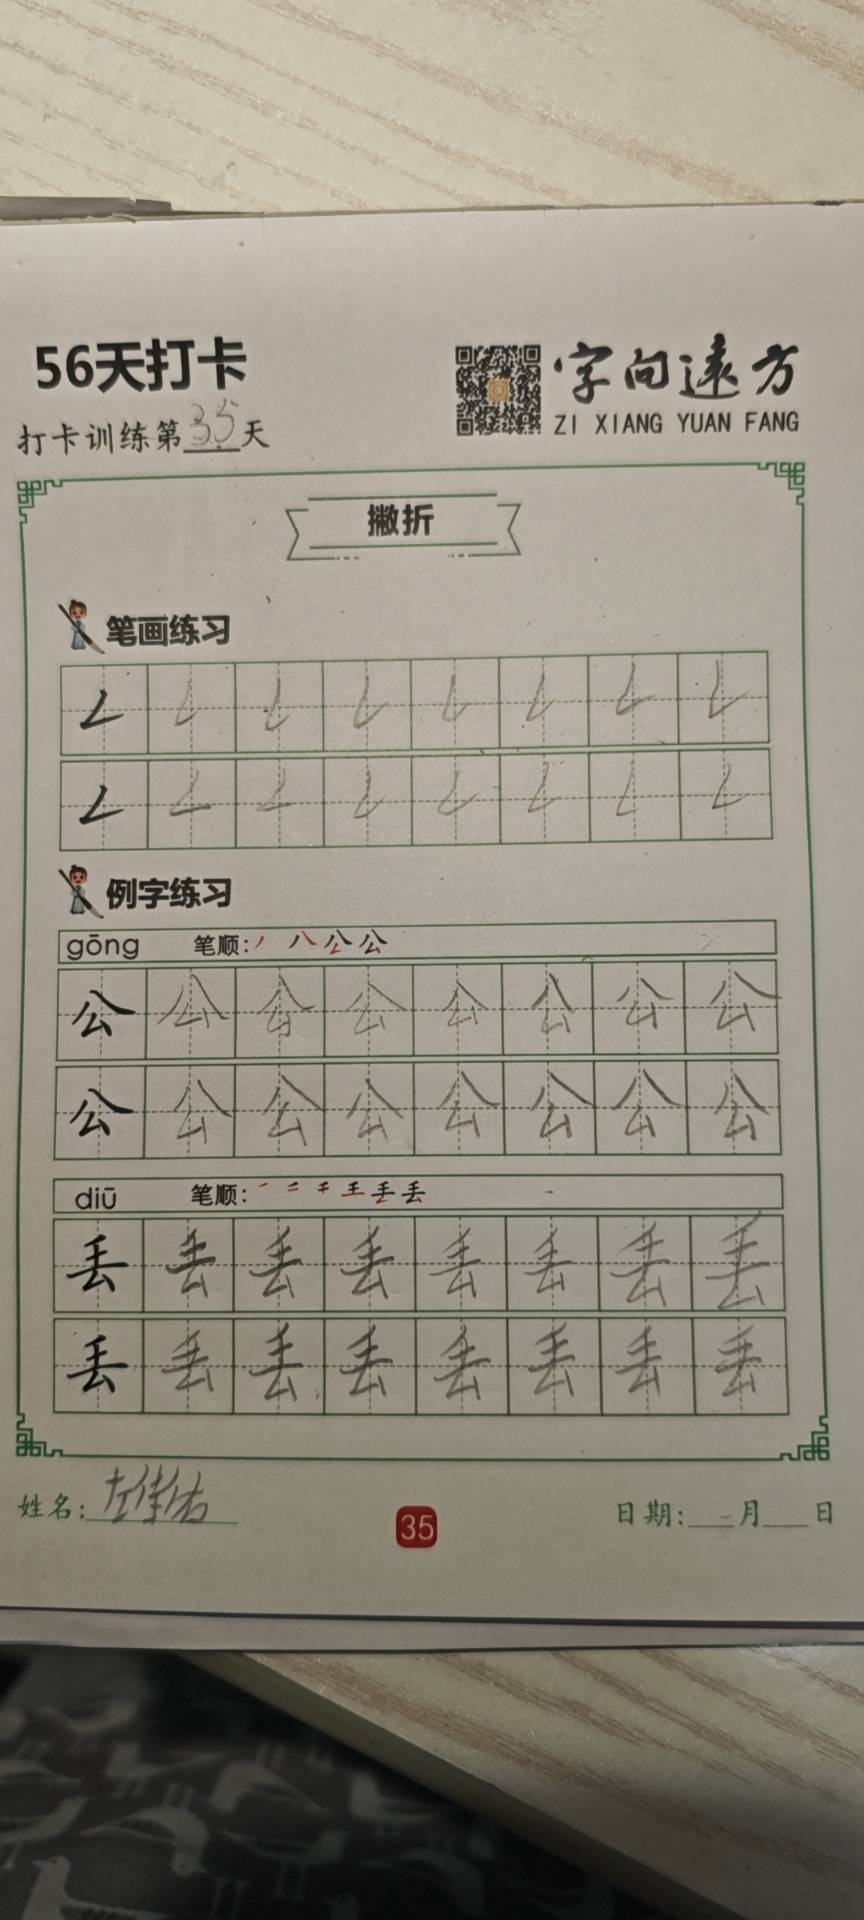 56天打卡
字向远方
ZI XIANG YUAN FANG
打卡训练第35天
撇折
笔画练习
例字练习
gōng 笔顺: 丿 八 公 公
公 公 公 公 公 公 公 公
公 公 公 公 公 公 公 公
diū 笔顺: 丢
丢 丢 丢 丢 丢 丢 丢 丢
丢 丢 丢 丢 丢 丢 丢 丢
姓名:
35
日期: 月 日